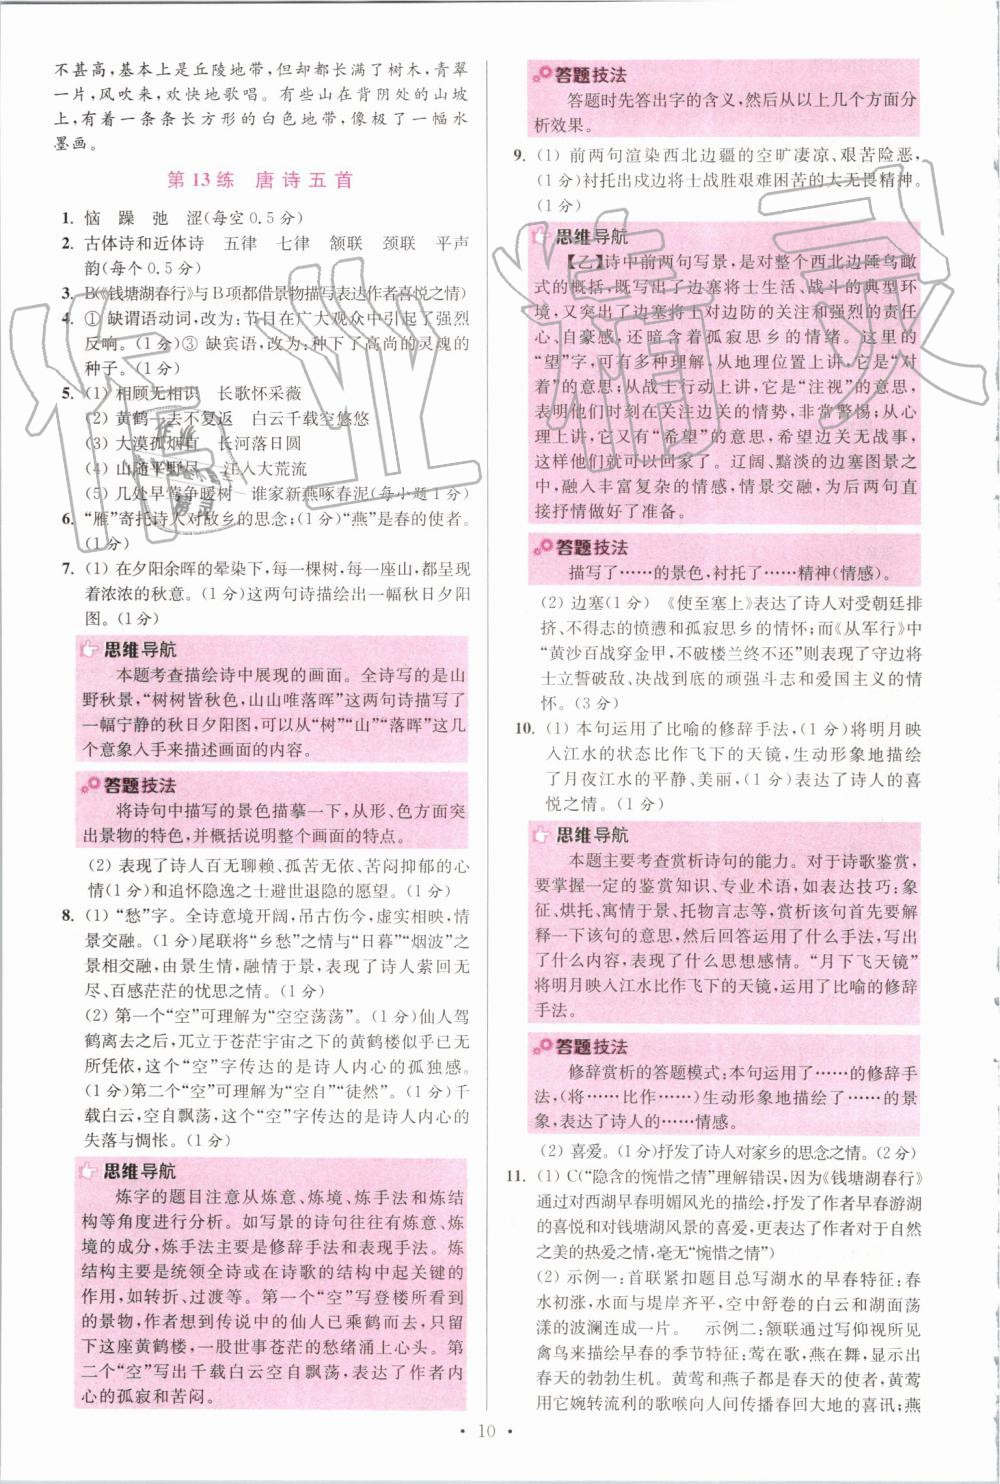 不甚高,基本上是丘陵地带,但却长满了树木,青翠
一片,风吹来,欢快地歌唱。有些山在背阴处的山坡
上,有着一条条长方形的白色地带,像极了一幅水
墨画。
第13练 唐诗五首
1. 恼 躁 弛 涩(每空0.5分)
2. 古体诗和近体诗 五律 七律 颔联 颈联 平声
韵(每个0.5分)
3. B(《钱塘湖春行》与B项都借景物描写表达作者喜悦之情)
4. ① 缺谓语动词,改为:节目在广大观众中引起了强烈
反响。(1分)③ 缺宾语,改为:种下了高尚的灵魂的
种子。(1分)
5. (1) 相顾无相识 长歌怀采薇
(2) 黄鹤一去不复返 白云千载空悠悠
(3) 大漠孤烟直 长河落日圆
(4) 山随平野尽 江入大荒流
(5) 几处早莺争暖树 谁家新燕啄春泥(每小题1分)
6. “雁”寄托诗人对故乡的思念;(1分)“燕”是春的使者。
(1分)
7. (1) 在夕阳余晖的晕染下,每一棵树,每一座山,都洋溢
着浓浓的秋意。(1分)这两句诗描绘出一幅秋日夕阳
图。(1分)
思维导航
本题考查描绘诗中展现的画面。全诗写的是山
野秋景,“树树皆秋色,山山唯落晖”这两句诗描写了
一幅宁静的秋日夕阳图,可以从“树”“山”“落晖”这几
个意象入手来描述画面的内容。
答题技法
将诗句中描写的景色描摹一下,从形、色方面突
出景物的特色,并概括说明整个画面的特点。
(2) 表现了诗人百无聊赖、孤苦无依、苦闷抑郁的心
情(1分)和追怀隐逸之士避世退隐的愿望。(1分)
8. (1) “愁”字。全诗意境开阔,吊古伤今,虚实相映,情
景交融。(1分)尾联将“乡愁”之情与“日暮”“烟波”之
景相交融,由景生情,寓情于景,表现了诗人萦回无
尽、百感茫茫的忧思之情。(1分)
(2) 第一个“空”可理解为“空空荡荡”。(1分)仙人驾
鹤离去之后,兀立于苍茫宇宙之下的黄鹤楼似乎已无
所凭依,这个“空”字传达的是诗人内心的孤独感。
(1分)第二个“空”可理解为“空自”“徒然”。(1分)千
载白云,空自飘荡,这个“空”字传达的是诗人内心的
失落与惆怅。(1分)
思维导航
炼字的题目注意从炼意、炼境、炼手法和炼结
构等角度进行分析。如写景的诗句往往有炼意、炼
境的成分,炼手法主要是修辞手法和表现手法。炼
结构主要是统领全诗或在诗歌的结构中起关键的
作用,如转折、过渡等。第一个“空”写登楼所看到
的景物,作者想到传说中的仙人已乘鹤而去,只留
下这座黄鹤楼,一股世事苍茫的愁绪涌上心头。第
二个“空”写出千载白云空自飘荡,表现了作者内
心的孤寂和苦闷。
答题技法
答题时先答出字的含义,然后从以上几个方面分
析效果。
9. (1) 前两句渲染西北边疆的空旷凄凉、艰苦险恶,
(1分)衬托出戍边将士战胜艰难困苦的大无畏精神。
(1分)
思维导航
【乙】诗中前两句写景,是对整个西北边陲鸟瞰
式的概括,既写出了边塞将士生活、战斗的典型环
境,又突出了边塞将士对边防的关注和强烈的责任
心、自豪感,还暗含着孤寂思乡的情绪。这里的
“望”字,可有多种理解,从地理位置上讲,它是“对
着”的意思;从战士行动上讲,它是“注视”的意思,
表明他们时刻在关注边关的情势,非常警惕;从心
理上讲,它又有“希望”的意思,希望边关无战事,
这样他们就可以回家了。辽阔、黯淡的边塞图景之
中,融入丰富复杂的情感,情景交融,为后两句直
接抒情做好了准备。
答题技法
描写了……的景色,衬托了……精神(情感)。
(2) 边塞(1分) 《使至塞上》表达了诗人对受朝廷排
挤、不得志的愤懑和孤寂思乡的情怀;而《从军行》中
“黄沙百战穿金甲,不破楼兰终不还”,表现了守边将
士立誓破敌、决战到底的顽强斗志和爱国主义的情
怀。(3分)
10. (1) 本句运用了比喻的修辞手法,(1分)将明月映
入江水的状态比作飞下的天镜,生动形象地描绘
了月夜江水的平静、美丽,(1分)表达了诗人的喜
悦之情。(1分)
思维导航
本题主要考查赏析诗句的能力。对于诗歌鉴赏,
要掌握一定的鉴赏知识、专业术语,如表达技巧;象
征、烘托、寓情于景、托物言志等,赏析该句首先要解
释一下该句的意思,然后回答运用了什么手法,写出
了什么内容,表现了什么思想感情。“月下飞天镜”
将明月映入江水比作飞下的天镜,运用了比喻的修辞
手法。
答题技法
修辞赏析的答题模式:本句运用了……的修辞手
法,(将……比作……)生动形象地描绘了……的景
象,表达了诗人的……情感。
(2) 喜爱。(1分)抒发了诗人对家乡的思念之情。(2分)
11. (1) C(“隐含的惋惜之情”理解错误,因为《钱塘湖春行》
通过对西湖早春明媚风光的描绘,抒发了作者早春游湖
的喜悦和对钱塘湖风景的喜爱,更表达了作者对于自然
之美的热爱之情,毫无“惋惜之情”)
(2) 示例一:首联紧扣题目总写湖水的早春特征:春
水初涨,水面与堤岸齐平,空中舒卷的白云和湖面荡
漾的波澜连成一片。 示例二:颔联通过写仰视所见
禽鸟来描绘早春的季节特征:莺在歌,燕在舞,显示出
春天的勃勃生机。黄莺和燕子都是春天的使者,黄莺
用它婉转流利的歌喉向人间传播春回大地的喜讯;燕
· 10 ·
作业精灵